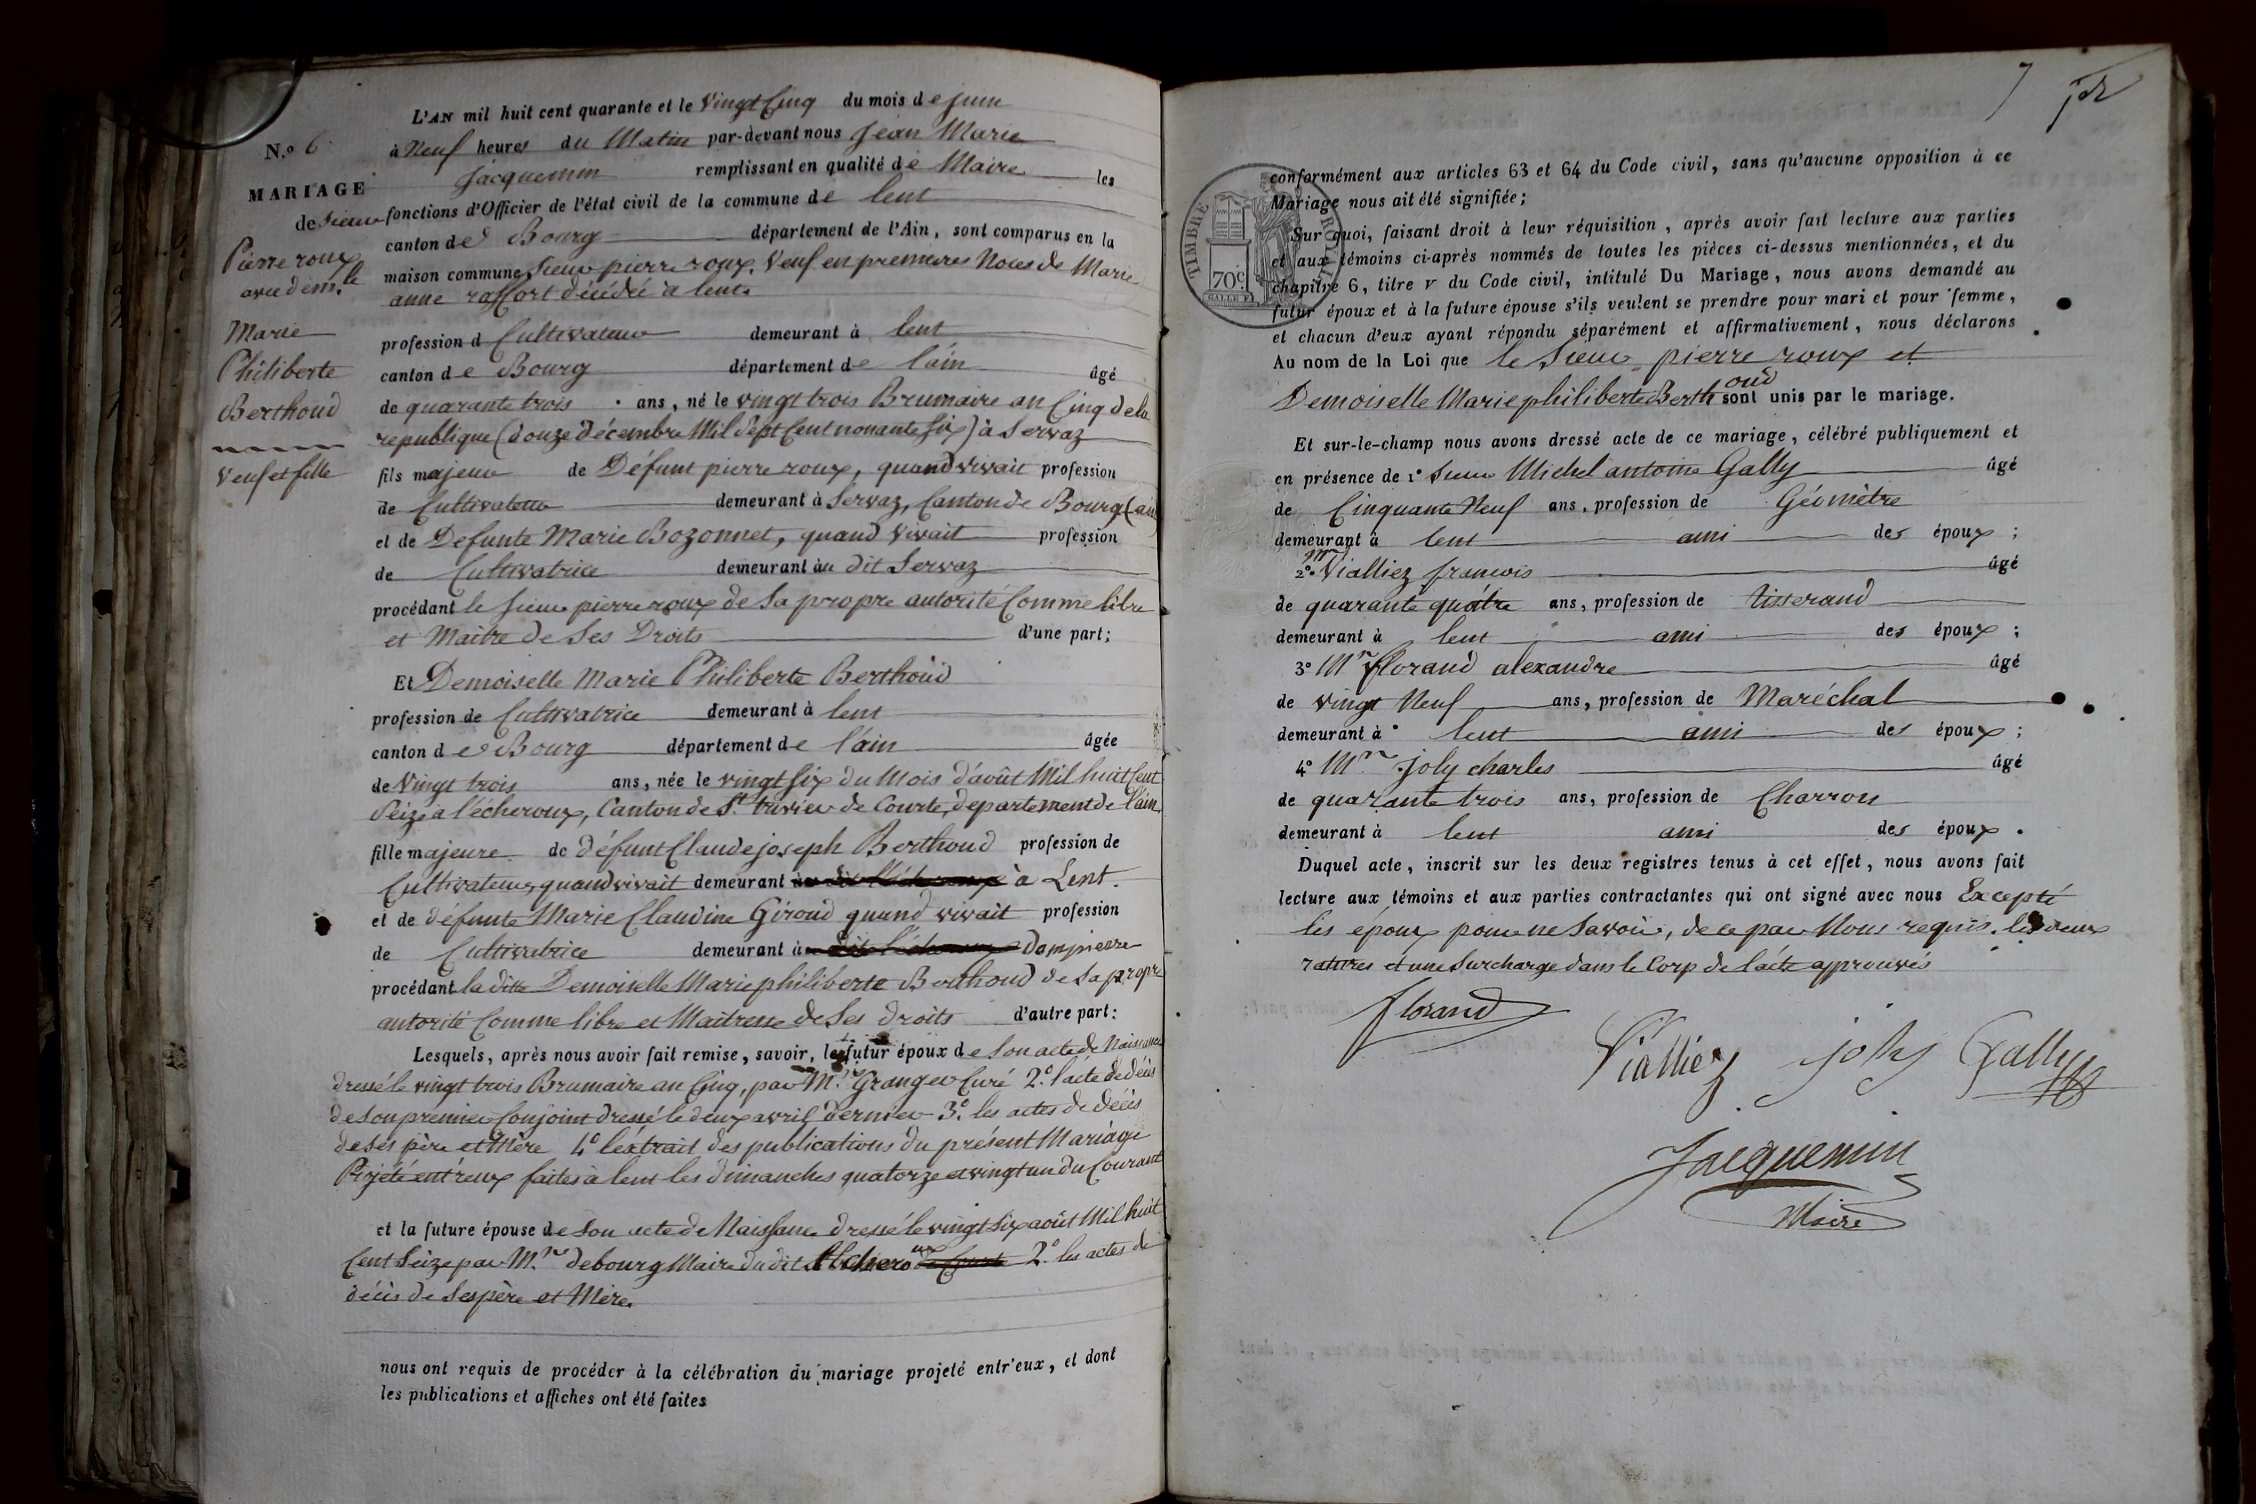 L'AN mil huit cent quarante et le vingt Cinq du mois de juin
N.o 6
à Neuf heures du Matin par-devant nous Jean Marie
Jacquemin remplissant en qualité de Maire les
MARIAGE
fonctions d'Officier de l'état civil de la commune de lent
de Sieur
canton de Bourg département de l'Ain, sont comparus en la
Pierre roux
maison commune Sieur pierre roux, Veuf en premieres Noces de Marie
avec dems.le
anne raffort décédée à lent.
Marie
profession d Cultivateur demeurant à lent
Philiberte
canton de Bourg département de l'ain âgé
Berthoud
de quarante trois ans, né le vingt trois Brumaire an Cinq de la
republique (douze décembre Mil Sept Cent nonante Six) à Servaz
Veuf et fille
fils majeur de Défunt pierre roux, quand vivait profession
de Cultivateur demeurant à Servaz, Canton de Bourg (ain)
et de Defunte Marie Bozonnet, quand Vivait profession
de Cultivatrice demeurant au dit Servaz
procédant le Sieur pierre roux de Sa propre autorité Comme libre
et Maître de Ses Droits d'une part;
Et Demoiselle Marie Philiberte Berthoud
profession de Cultivatrice demeurant à lent
canton de Bourg département de l'ain âgée
de Vingt trois ans, née le vingt Six du Mois d'août Mil huit Cent
Seize a l'écheroux, Canton de St. trivier de Courte, departement de l'ain
fille majeure de défunt Claude joseph Berthoud profession de
Cultivateur, quand vivait demeurant à Lent.
et de défunte Marie Claudine Giroud quand vivait profession
de Cultivatrice demeurant à Dompierre
procédant la ditte Demoiselle Marie philiberte Berthoud de Sa propre
autorité Comme libre et Maitresse de Ses droits d'autre part:
Lesquels, après nous avoir fait remise, savoir, le futur époux de Son acte de Naissance
dressé le vingt trois Brumaire an Cinq, par Mr. Granger Curé 2.o l'acte de décès
de Son premier Conjoint dressé le deux avril dernier 3.o les actes de décès
de Ses père et Mère 4.o l'éxtrait des publications du présent Mariage
Projété entr'eux faites à lent les dimanches quatorze et vingt un du Courant
et la future épouse de Son acte de Naissance dressé le vingt Six août Mil huit
Cent Seize par Mr. debourg Maire du dit l'Echeroux 2.o les actes de
décès de Ses père et Mère.
nous ont requis de procéder à la célébration du mariage projeté entr'eux, et dont
les publications et affiches ont été faites
7
conformément aux articles 63 et 64 du Code civil, sans qu'aucune opposition à ce
Mariage nous ait été signifiée;
Sur quoi, faisant droit à leur réquisition, après avoir fait lecture aux parties
et aux témoins ci-après nommés de toutes les pièces ci-dessus mentionnées, et du
chapitre 6, titre v du Code civil, intitulé Du Mariage, nous avons demandé au
futur époux et à la future épouse s'ils veulent se prendre pour mari et pour femme,
et chacun d'eux ayant répondu séparément et affirmativement, nous déclarons
TIMBRE ROYAL
70c
Au nom de la Loi que le Sieur pierre roux et
Demoiselle Marie philiberte Berthoud sont unis par le mariage.
Et sur-le-champ nous avons dressé acte de ce mariage, célébré publiquement et
en présence de 1o Sieur Michel antoine Gally âgé
de Cinquante Neuf ans, profession de Géomètre
demeurant à lent ami des époux;
2o. Mr Vialliez francois âgé
de quarante quatre ans, profession de tisserand
demeurant à lent ami des époux;
3o Mr florand alexandre âgé
de vingt Neuf ans, profession de Maréchal
demeurant à lent ami des époux;
4o Mr. joly charles âgé
de quarante trois ans, profession de Charron
demeurant à lent ami des époux.
Duquel acte, inscrit sur les deux registres tenus à cet effet, nous avons fait
lecture aux témoins et aux parties contractantes qui ont signé avec nous Excepté
les époux pour ne Savoir, de ce par Nous requis. les deux
ratures et une Surcharge dans le Corp de l'acte approuvés
florand
Vialliez joly Gally
Jacquemin
Maire